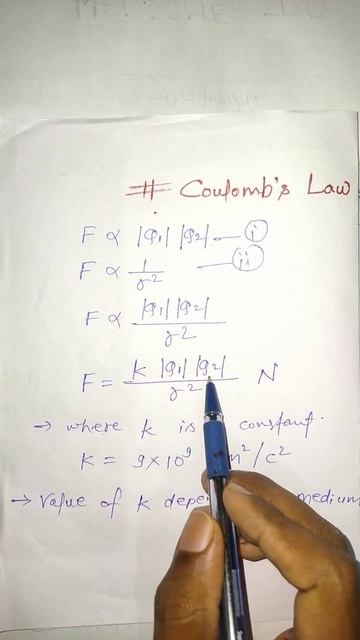 # Coulomb's Law
F ∝ |q₁| |q₂| — (i)
F ∝ 1/r² — (ii)
F ∝ |q₁| |q₂| / r²
F = k |q₁| |q₂| / r² N
→ where k is constant.
K = 9×10⁹ m²/c²
→ Value of k medium